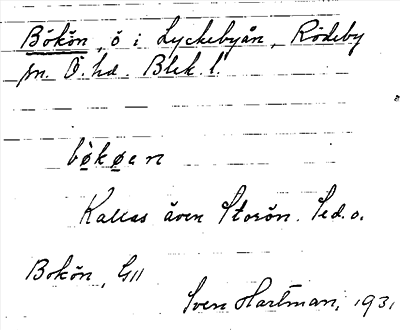 Bökön, ö i Lyckebyån, Rödeby
sn. Ö. hd. Blek. l.
bø̀køen
Kallas även Storön. Se d. o.
Bokön, GII
Sven Hartman, 1931